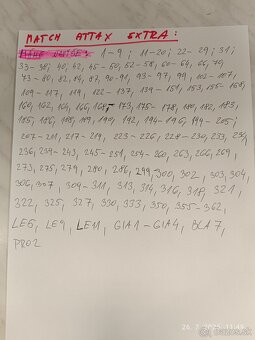 MATCH ATTAX EXTRA:
1-9; 11-20; 22-29; 31;
33-38; 40, 42, 45-50, 52-58, 60-64, 66, 70,
73-80, 82, 84, 87, 90-91, 93-97, 99, 102-107,
109-117, 119, 122-137, 139-151, 153, 155-158,
160, 162, 164, 166, 168-173, 175-178, 180, 182, 183,
185, 186, 188, 189, 190, 192, 194, 196, 199-205;
207-211, 217-219, 223-226, 228-230, 233, 234,
236, 239-243, 245-251, 254-260, 263, 266, 269,
273, 275, 279, 280, 286, 299-300, 302, 303, 304,
306, 307, 309-311, 313, 314, 316, 318, 321,
322, 325, 327, 330, 333, 350, 355-362,
LE5, LE9, LE11, GIA1-GIA4, BLA7,
PRO2
26.7.2025 11:49